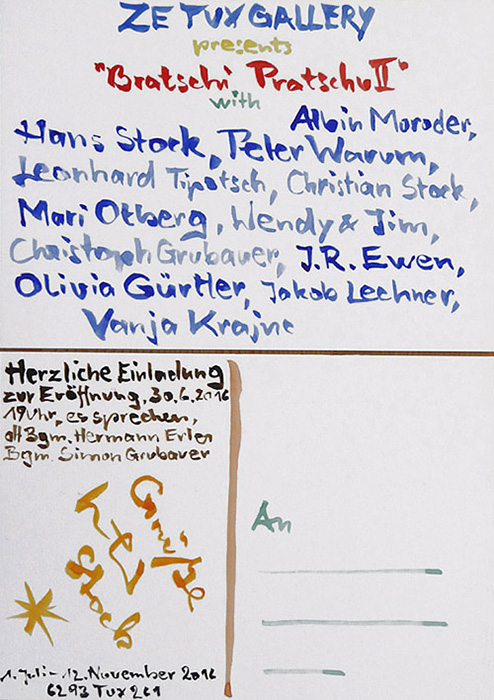 ZE TUX GALLERY
presents
"Bratschi Pratschu II"
with
Albin Moroder,
Hans Stock, Peter Warum,
Leonhard Tipotsch, Christian Stock,
Mari Otberg, Wendy & Jim,
Christoph Grubauer, J.R. Ewen,
Olivia Gürtler, Jakob Lechner,
Vanja Krajnc
Herzliche Einladung
zur Eröffnung, 30.6.2016
19 Uhr, es sprechen,
alt Bgm. Hermann Erler
Bgm. Simon Grubauer
Grüße
Stock
An
1. Juli - 12. November 2016
6293 Tux 261